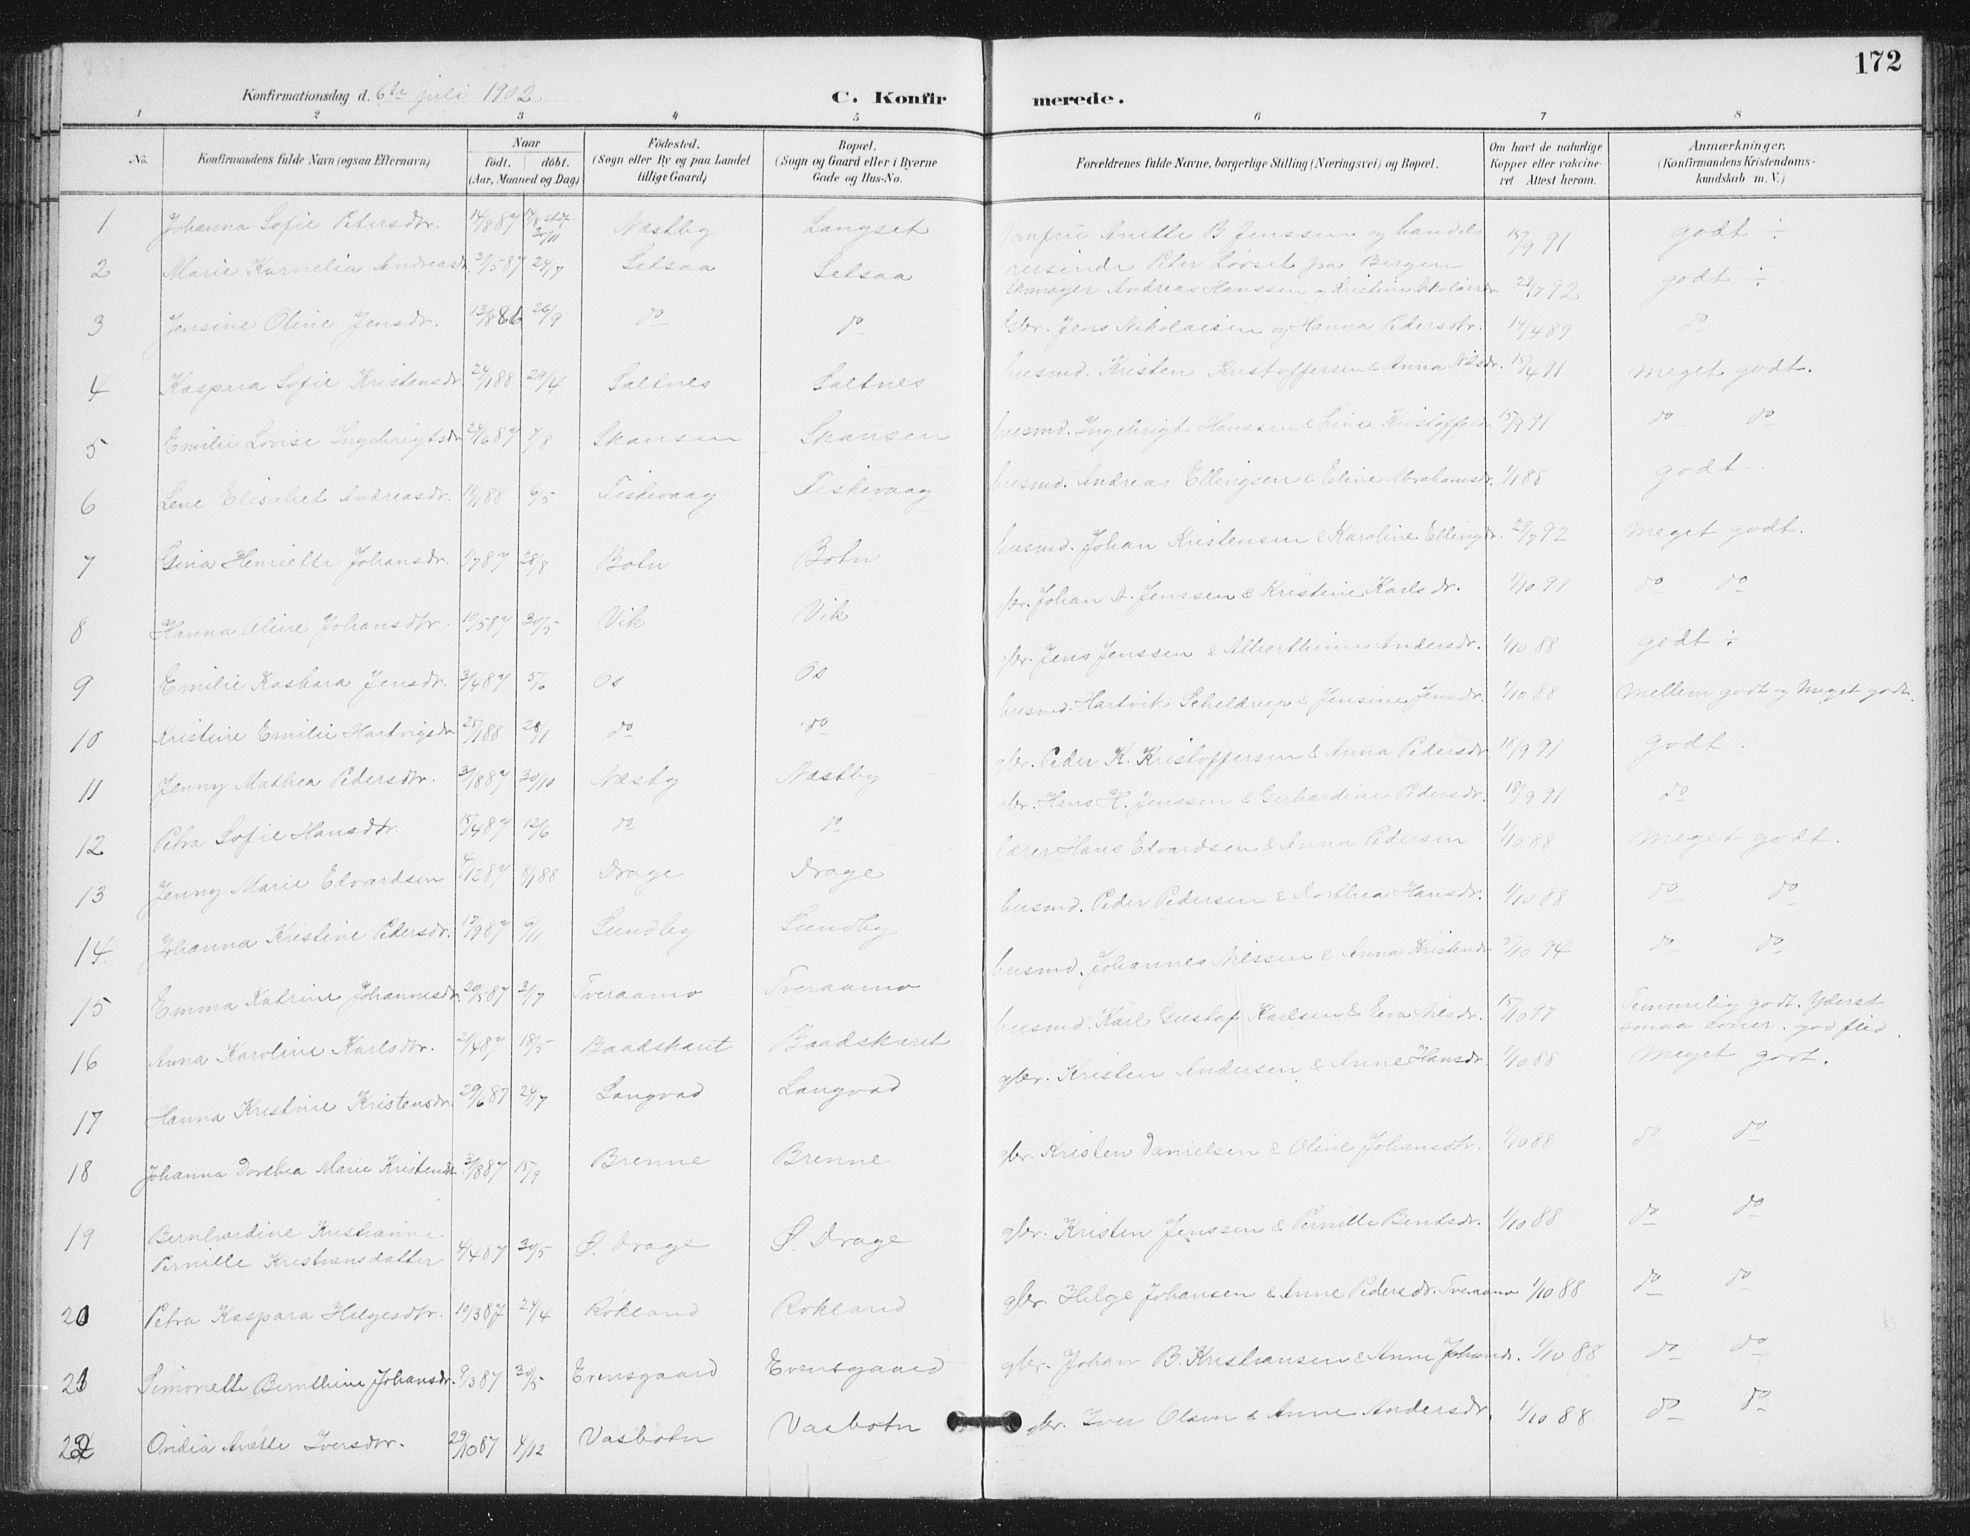 172
Konfirmationsdag d. 6te juli 1902.
C. Konfirmerede.
1 2 3 4 5 6 7 8
No. Konfirmandens fulde Navn (ogsaa Efternavn) Naar födt. döbt. (Aar, Maaned og Dag) Födested. (Sogn eller By og paa Landet tillige Gaard) Bopæl. (Sogn og Gaard eller i Byerne Gade og Hus-No. Forældrenes fulde Navne, borgerlige Stilling (Næringsvei) og Bopæl. Om havt de naturlige Kopper eller vakcineret Attest herom. Anmærkninger. (Konfirmandens Kristendomskundskab m. V.)
1 Johanna Sofie Petersdtr. 14/8 87 Næstby Langset Jomfru Anette B. Jenssen og handelsreisende Peter Lorset pa Bergen 15/9 91 godt ÷
2 Marie Kornelia Andreasd. 31/5 87 24/7 Setsaa Setsaa Skomager Andreas Hanssen og Kristine 24/7 92 godt ÷
3 Jensine Oline Jensdr. 13/8 86 26/9 do do Gbr. Jens Nikolaisen og Hanna Pedersdtr. 14/4 89 do
4 Kaspara Sofie Kristensdr. 24/1 88 29/4 Saltnes Saltnes husmd. Kristen Kristoffersen & Anna Nilsdr. 15/4 91 Meget godt.
5 Emilie Lovise Ingebrigtsdr. 24/6 87 7/8 Skansen Skansen husmd. Ingebrigt Hanssen & Line Kristoffersd. 15/9 91 do do
6 Lene Elisabet Andreasdr. 18/1 88 6/5 Fiskevaag Fiskevaag husmd. Andreas Ellingsen & Eline Abrahamsdr. 1/1 88 godt.
7 Gina Henriette Johansdr. 1/7 87 28/8 Botn Botn husmd. Johan Kristensen & Karoline Ellingdr. 29/7 92 Meget godt.
8 Hanna Oline Johansdtr. 10/5 87 30/5 Vik Vik gbr. Johan A. Jenssen & Kristine Karlsdr. 1/10 91 do do
9 Emilie Kasbara Jensdr. 3/4 87 5/6 Os Os gbr. Jens Jenssen & Alberthine Andersdr. 1/10 88 godt ÷
10 Kristine Emilie Hartvigsdr. 25/1 88 28/1 do do husmd. Hartvik Scheldrup & Jensine Jensdr. 1/10 88 Mellem godt og Meget godt.
11 Jenny Mathea Pedersdtr. 31/8 87 30/10 Næstby Næstby gbr. Peder K. Kristoffersen & Anna Pedersdr. 18/9 91 godt.
12 Petra Sofie Hansdtr. 15/4 87 12/6 do do gbr. Hans H. Jenssen & Gerhardine Pedersdr. 18/9 91 do
13 Jenny Marie Edvardsen 4/12 87 8/1 88 Drage Drage Lærer Hans Edvardsen & Anna Pedersen 1/10 88 Meget godt.
14 Johanna Kristine Pedersdr. 17/9 87 9/11 Sundby Sundby husmd. Peder Pedersen & Dorthea Hansdr. 1/10 88 do do
15 Emma Katrine Johannesdr. 20/5 87 3/7 Tveraamo Tveraamo husmd. Johannes Nilssen & Anna Kristensdr. 5/10 94 do do
16 Anna Karoline Karlsdtr. 21/4 87 18/5 Baadskaret Baadskaret husmd. Karl Gustaf Karlsen & Eva Nilsdr. 15/10 97 Temmelig godt. Yderst smaa evner. god flid.
17 Hanna Kristine Kristensdr. 29/6 87 24/7 Langvad Langvad gbr. Kristen Andersen & Anne Hansdr. 1/10 88 Meget godt.
18 Johanna Dorthea Marie Kristensdr. 31/8 87 15/9 Brenne Brenne gbr. Kristen Danielsen & Oline Johansdtr. 1/10 88 do do
19 Bernhardine Kristianne Pernille Kristiansdatter 4/4 87 30/5 Ø. Drage Ø. Drage gbr. Kristen Jenssen & Pernille Bendsdr. 1/10 88 do do
20 Petra Kaspara Helgesdtr. 10/3 87 24/4 Rokland Rokland gbr. Helge Johansen & Anne Pedersdr. Tveraamo 1/10 88 do do
21 Simonette Bernthine Johansdr. 9/3 87 30/5 Evensgaard Evensgaard gbr. Johan B. Kristiansen & Anne Johansdr. 1/10 88 do do
22 Ovidia Anette Iversdtr. 29/10 87 4/12 Vasbotn Vasbotn gbr. Iver Olsen & Anne Andersdr. 1/10 88 do do